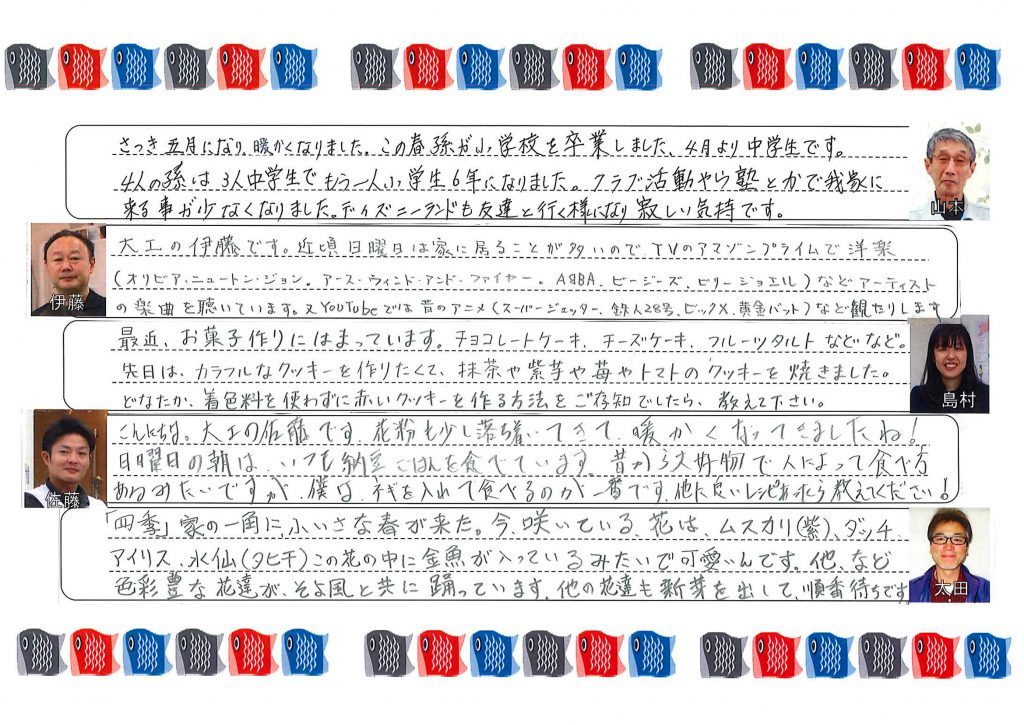 さつき五月になり、暖かくなりました。この春孫が小学校を卒業しました、4月より中学生です。
4人の孫は3人中学生でもう一人小学生6年になりました。クラブ活動やら塾とかで我家に
来る事が少なくなりました。ディズニーランドも友達と行く様になり寂しい気持です。
山本
大工の伊藤です。近頃日曜日は家に居ることが多いので、TVのアマゾンプライムで洋楽
(オリビア・ニュートン・ジョン。アース・ウィンド・アンド・ファイヤー。ABBA、ビージーズ、ビリージョエル)などアーティスト
の楽曲を聴いています。又YouTubeでは昔のアニメ(スーパージェッター、鉄人28号、ビックX、黄金バット)など観たりします
伊藤
最近、お菓子作りにはまっています。チョコレートケーキ、チーズケーキ、フルーツタルトなどなど。
先日は、カラフルなクッキーを作りたくて、抹茶や紫芋や苺やトマトのクッキーを焼きました。
どなたか、着色料を使わずに赤いクッキーを作る方法をご存知でしたら、教えて下さい。
島村
こんにちは。大工の佐藤です。花粉も少し落ち着いてきて、暖かくなってきましたね!
日曜日の朝は、いつも納豆ごはんを食べています。昔から大好物で人によって食べ方
あるみたいですが、僕は、ネギを入れて食べるのが一番です。他に良いレシピあったら教えてください!
佐藤
「四季」家の一角に、小いさな春が来た。今、咲いている、花は、ムスカリ(紫)、ダッチ
アイリス、水仙(タヒチ)この花の中に金魚が入っているみたいで可愛いんです。他、など
色彩豊な花達が、そよ風と共に踊っています。他の花達も新芽を出して、順番待ちです
太田